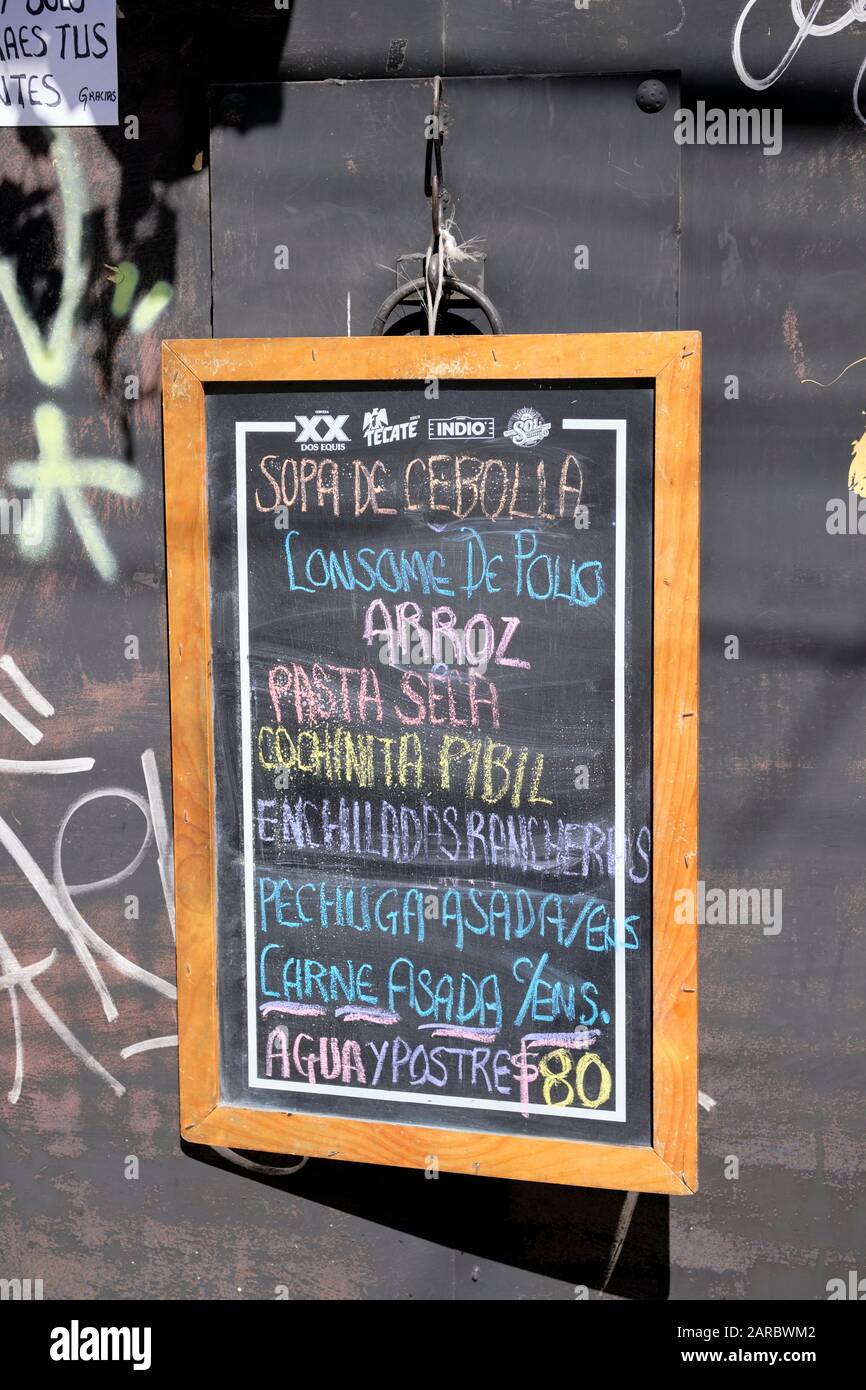 SOLO
TUS
Gracias
CERVEZA
XX
DOS EQUIS
TECATE
INDIO
SOL
SOPA DE CEBOLLA
CONSOME DE POLLO
ARROZ
PASTA SECA
COCHINITA PIBIL
ENCHILADAS RANCHERAS
PECHUGA ASADA/ENS
CARNE ASADA C/ENS.
AGUA Y POSTRE $80
alamy
Image ID: 2ARBWM2
www.alamy.com